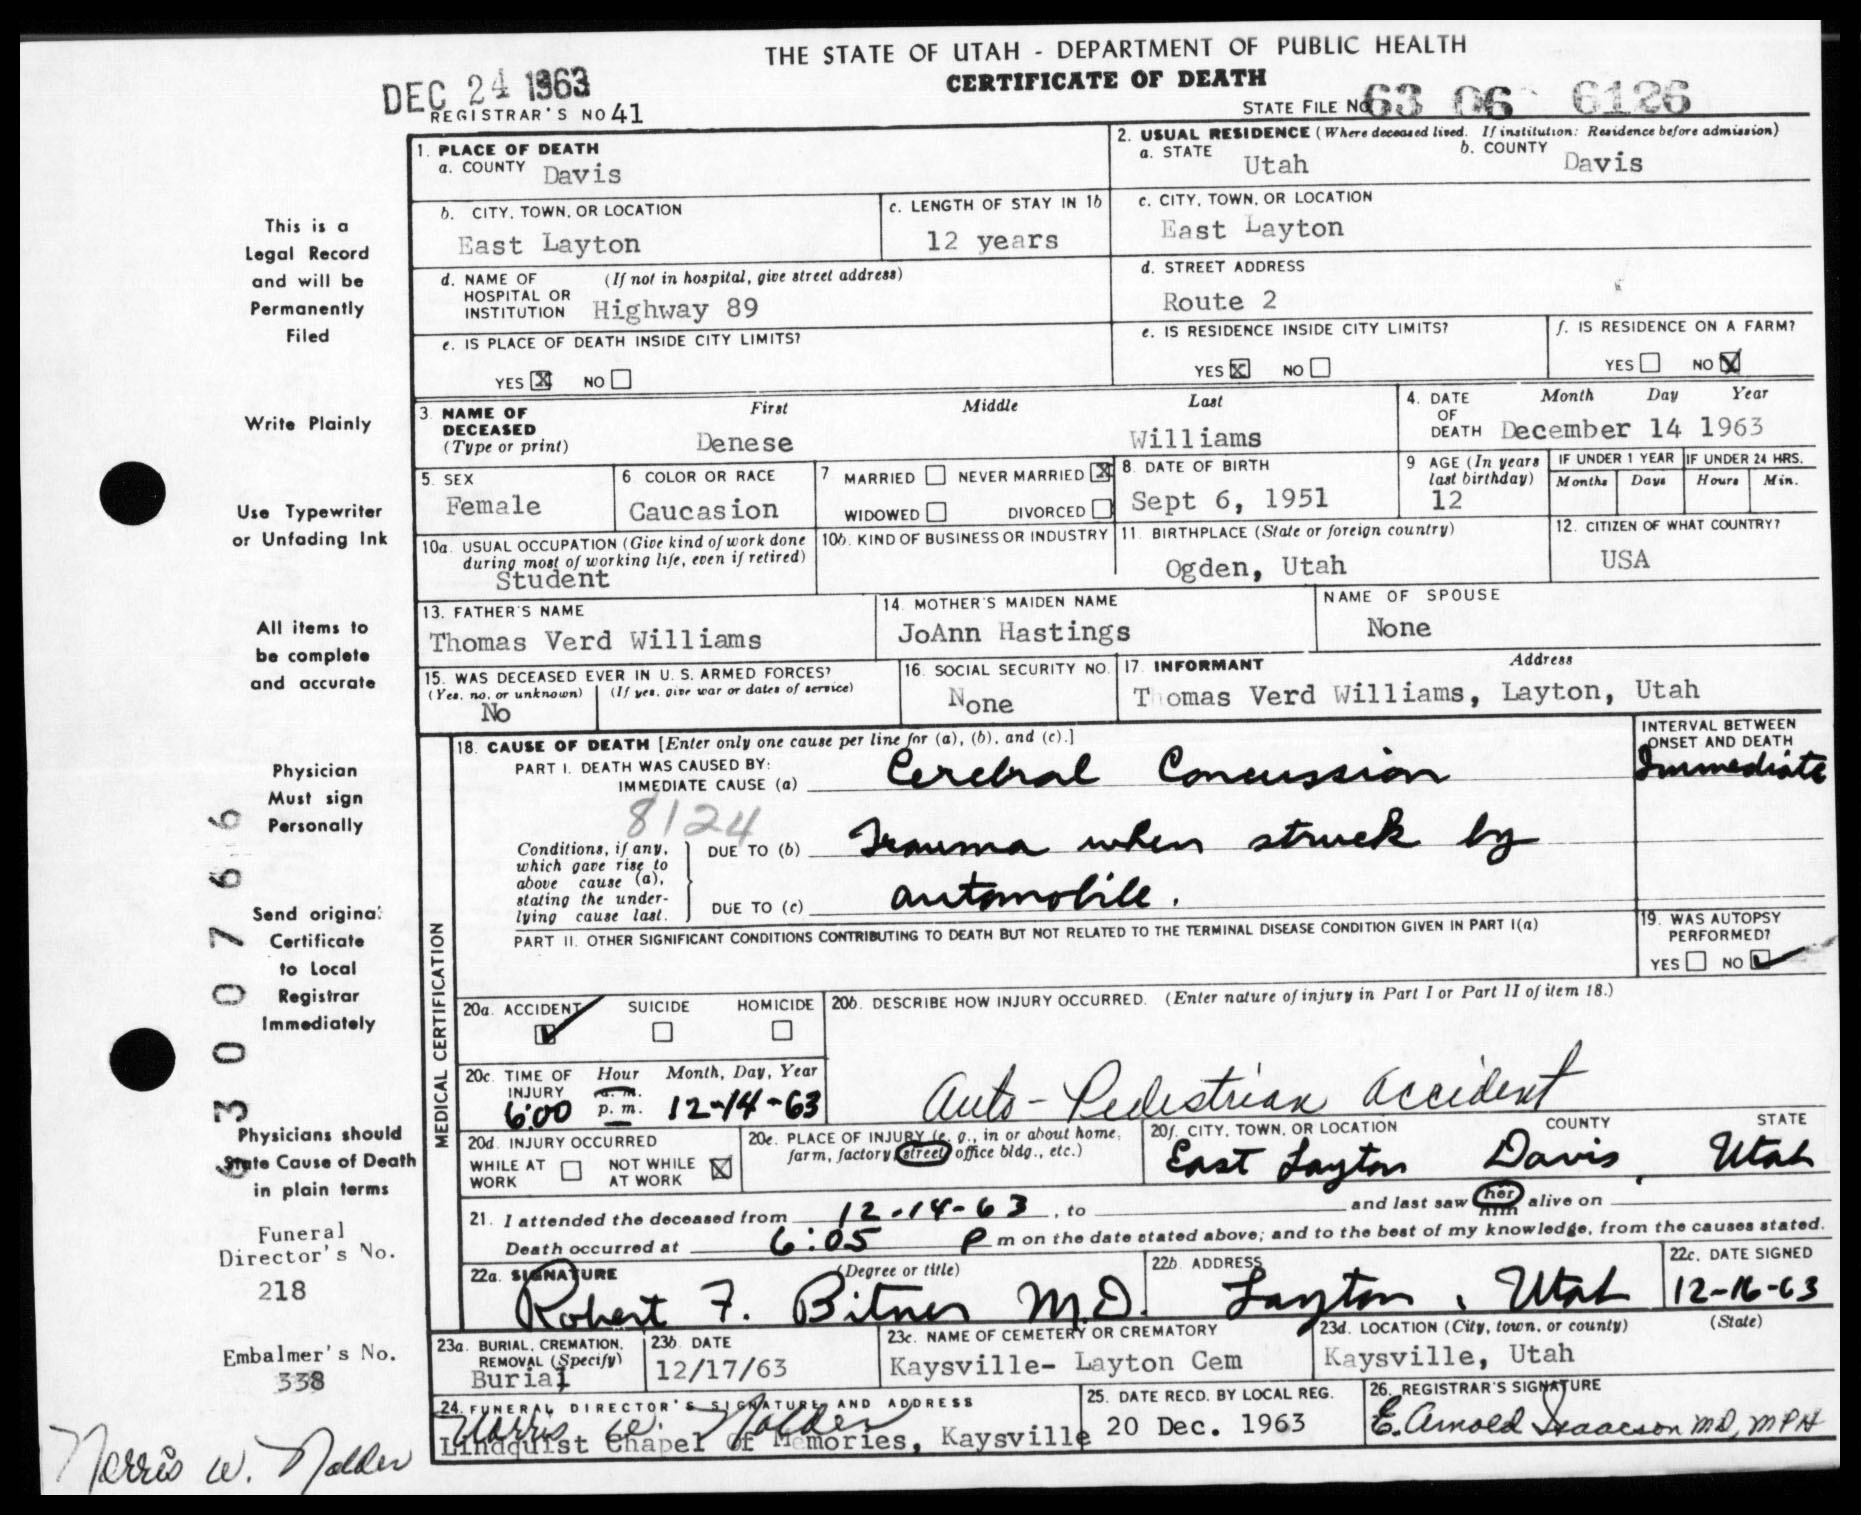 THE STATE OF UTAH - DEPARTMENT OF PUBLIC HEALTH
CERTIFICATE OF DEATH
DEC 24 1963
REGISTRAR'S NO 41
STATE FILE NO 63 06 6126
1. PLACE OF DEATH
a. COUNTY Davis
2. USUAL RESIDENCE (Where deceased lived. If institution: Residence before admission)
a. STATE Utah b. COUNTY Davis
b. CITY, TOWN, OR LOCATION
East Layton
c. LENGTH OF STAY IN 1b
12 years
c. CITY, TOWN, OR LOCATION
East Layton
d. NAME OF HOSPITAL OR INSTITUTION (If not in hospital, give street address)
Highway 89
d. STREET ADDRESS
Route 2
e. IS PLACE OF DEATH INSIDE CITY LIMITS?
YES X NO
e. IS RESIDENCE INSIDE CITY LIMITS?
YES X NO
f. IS RESIDENCE ON A FARM?
YES NO X
3. NAME OF DECEASED (Type or print)
First Middle Last
Denese Williams
4. DATE OF DEATH Month Day Year
December 14 1963
5. SEX
Female
6 COLOR OR RACE
Caucasion
7 MARRIED NEVER MARRIED X
WIDOWED DIVORCED
8. DATE OF BIRTH
Sept 6, 1951
9 AGE (In years last birthday)
12
IF UNDER 1 YEAR IF UNDER 24 HRS.
Months Days Hours Min.
10a. USUAL OCCUPATION (Give kind of work done during most of working life, even if retired)
Student
10b. KIND OF BUSINESS OR INDUSTRY
11. BIRTHPLACE (State or foreign country)
Ogden, Utah
12. CITIZEN OF WHAT COUNTRY?
USA
13. FATHER'S NAME
Thomas Verd Williams
14. MOTHER'S MAIDEN NAME
JoAnn Hastings
NAME OF SPOUSE
None
15. WAS DECEASED EVER IN U. S. ARMED FORCES?
(Yes, no, or unknown) (If yes, give war or dates of service)
No
16. SOCIAL SECURITY NO.
None
17. INFORMANT Address
Thomas Verd Williams, Layton, Utah
MEDICAL CERTIFICATION
18. CAUSE OF DEATH [Enter only one cause per line for (a), (b), and (c).]
INTERVAL BETWEEN ONSET AND DEATH
PART I. DEATH WAS CAUSED BY:
IMMEDIATE CAUSE (a) Cerebral Concussion Immediate
8124
Conditions, if any, which gave rise to above cause (a), stating the underlying cause last.
DUE TO (b) Trauma when struck by
DUE TO (c) automobile.
PART II. OTHER SIGNIFICANT CONDITIONS CONTRIBUTING TO DEATH BUT NOT RELATED TO THE TERMINAL DISEASE CONDITION GIVEN IN PART I(a)
19. WAS AUTOPSY PERFORMED?
YES NO ✓
20a. ACCIDENT ✓ SUICIDE HOMICIDE
20b. DESCRIBE HOW INJURY OCCURRED. (Enter nature of injury in Part I or Part II of item 18.)
Auto-Pedestrian accident
20c. TIME OF INJURY Hour Month, Day, Year
6:00 a. m. p. m. 12-14-63
20d. INJURY OCCURRED
WHILE AT WORK NOT WHILE AT WORK X
20e. PLACE OF INJURY (e. g., in or about home, farm, factory, street, office bldg., etc.)
20f. CITY, TOWN, OR LOCATION COUNTY STATE
East Layton Davis, Utah
21. I attended the deceased from 12-14-63, to and last saw her him alive on
Death occurred at 6:05 P m on the date stated above; and to the best of my knowledge, from the causes stated.
22a. SIGNATURE (Degree or title)
Robert F. Bitner M.D.
22b. ADDRESS
Layton, Utah
22c. DATE SIGNED
12-16-63
23a. BURIAL, CREMATION, REMOVAL (Specify)
Burial
23b. DATE
12/17/63
23c. NAME OF CEMETERY OR CREMATORY
Kaysville- Layton Cem
23d. LOCATION (City, town, or county) (State)
Kaysville, Utah
24. FUNERAL DIRECTOR'S SIGNATURE AND ADDRESS
Norris W. Nalder
Lindquist Chapel Of Memories, Kaysville
25. DATE RECD. BY LOCAL REG.
20 Dec. 1963
26. REGISTRAR'S SIGNATURE
E. Arnold Isaacson MD, MPH
This is a
Legal Record
and will be
Permanently
Filed
Write Plainly
Use Typewriter
or Unfading Ink
All items to
be complete
and accurate
Physician
Must sign
Personally
Send original
Certificate
to Local
Registrar
Immediately
Physicians should
State Cause of Death
in plain terms
6300766
Funeral
Director's No.
218
Embalmer's No.
338
Norris W. Nalder